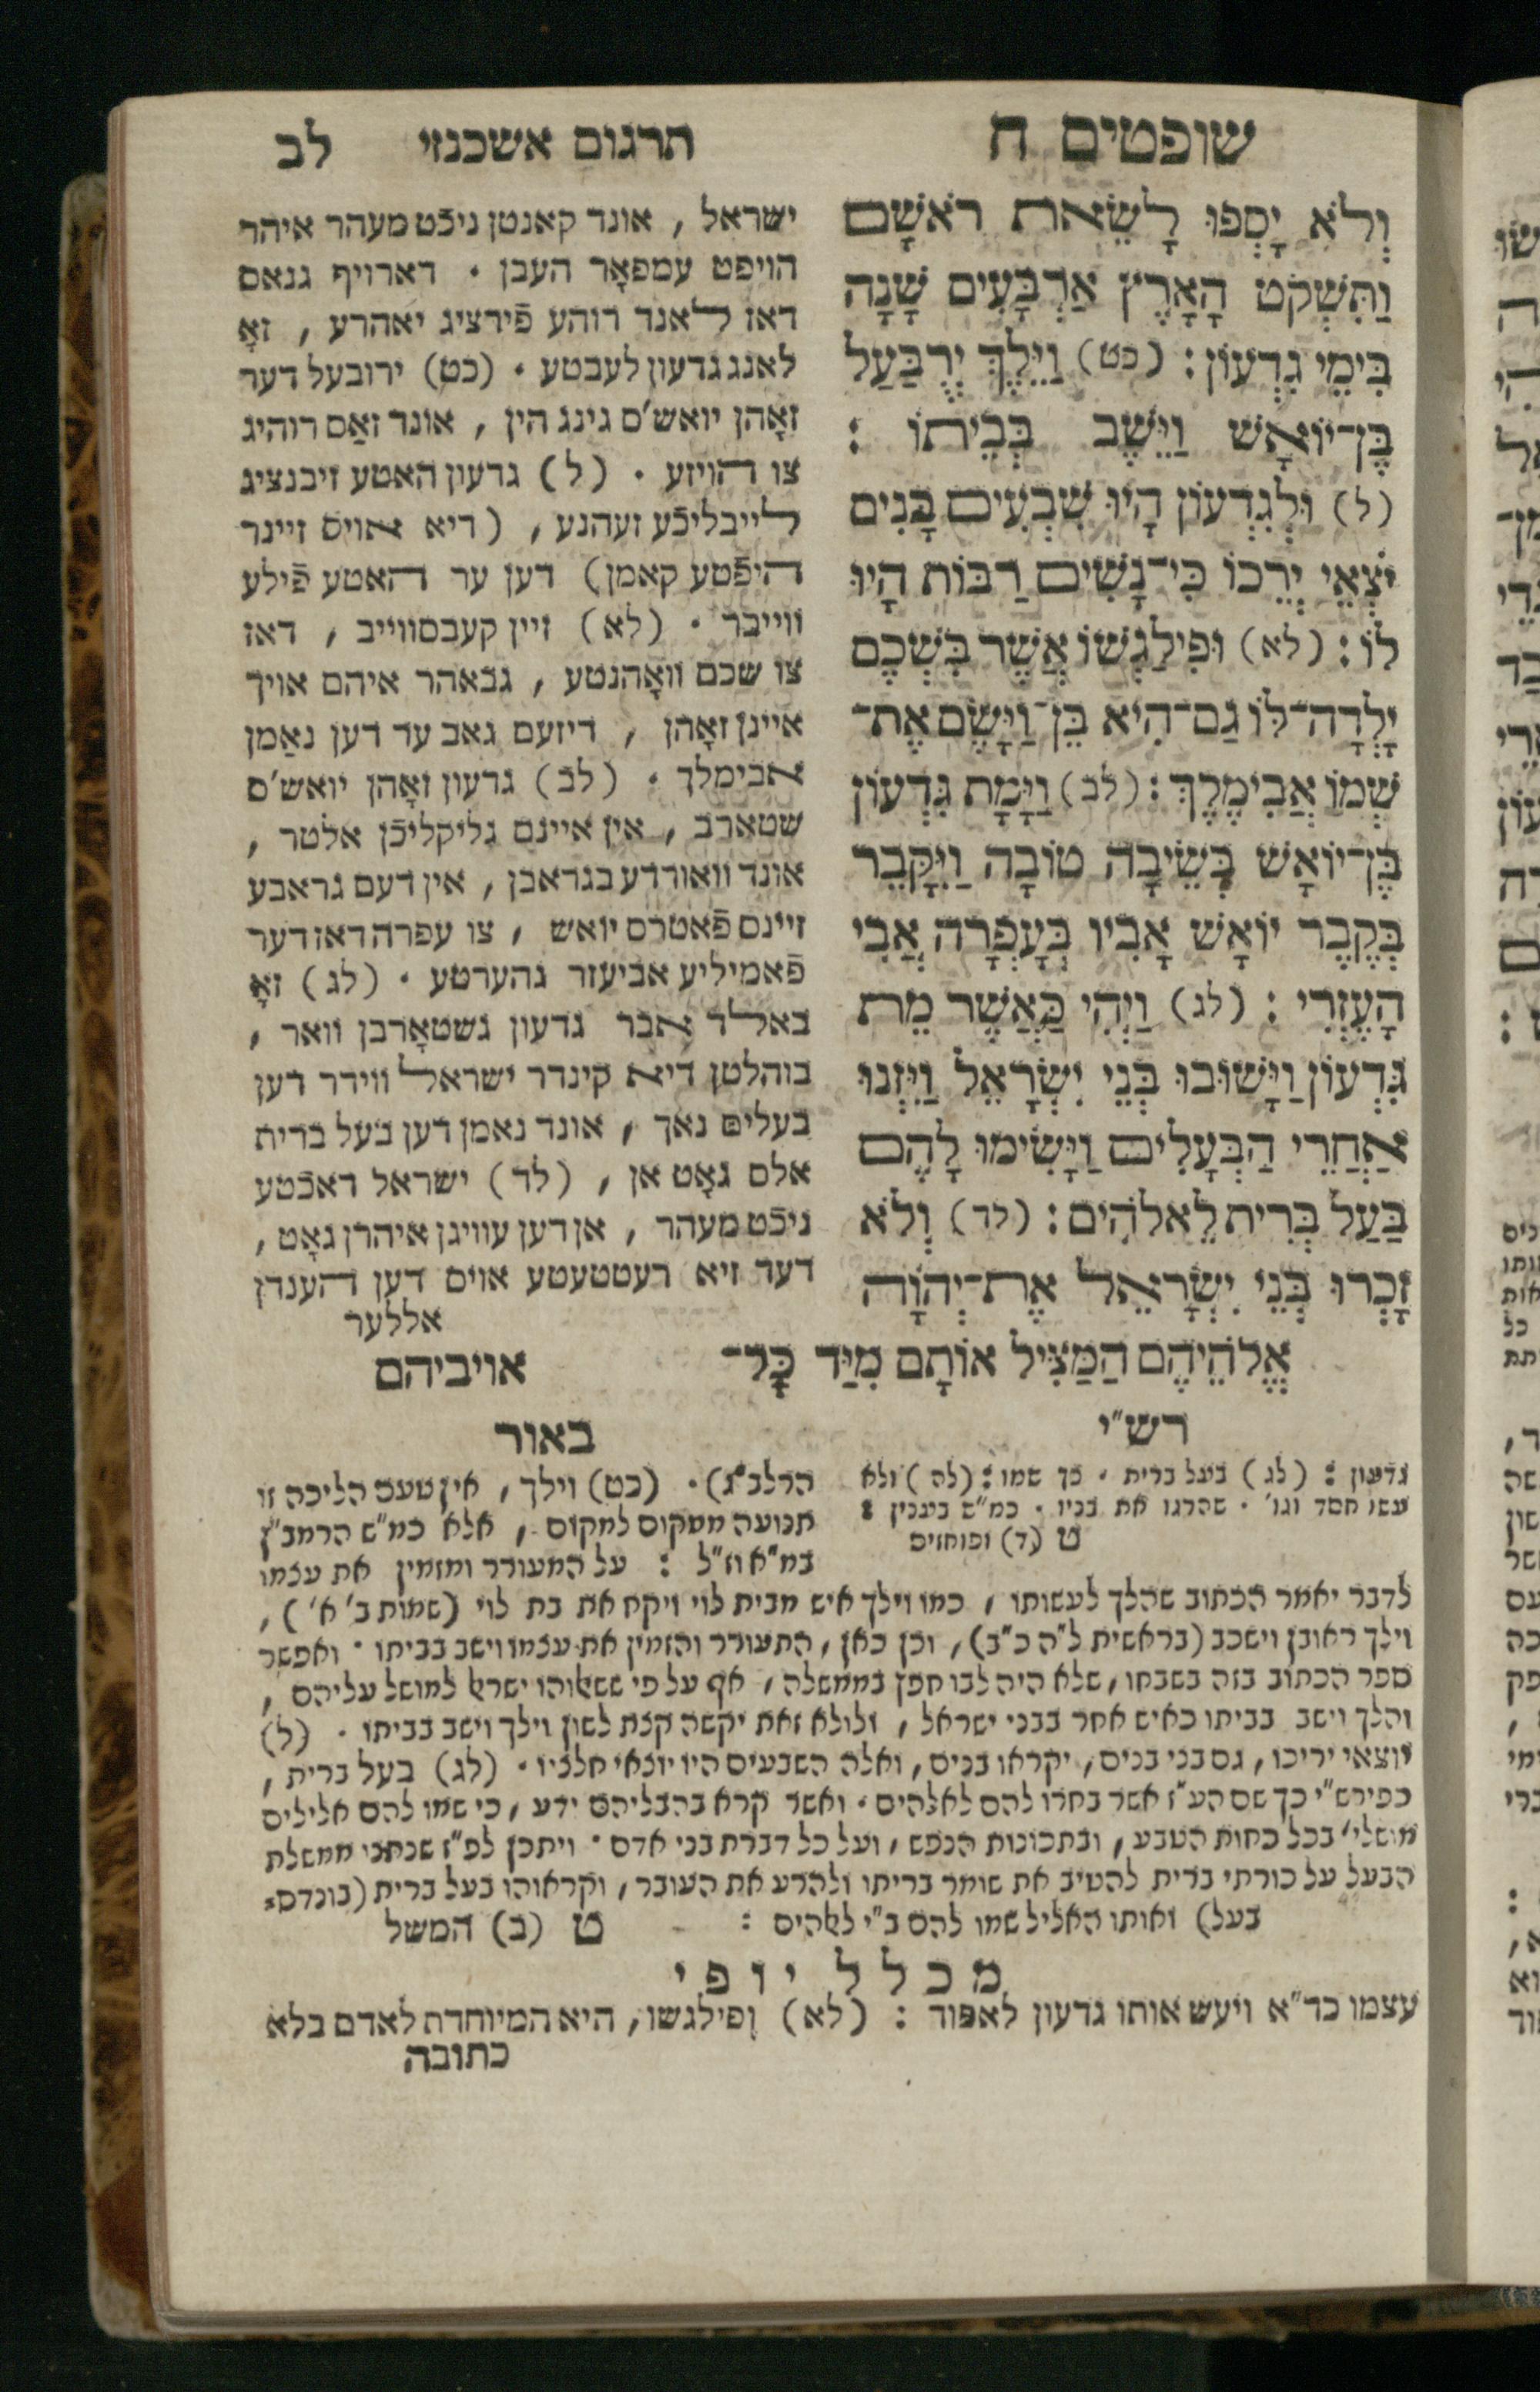 שופטים ח
תרגום אשכנזי
לב
וְלֹא יָסְפוּ לָשֵׂאת רֹאשָׁם
וַתִּשְׁקֹט הָאָרֶץ אַרְבָּעִים שָׁנָה
בִּימֵי גִדְעוֹן: (כט) וַיֵּלֶךְ יְרֻבַּעַל
בֶּן־יוֹאָשׁ וַיֵּשֶׁב בְּבֵיתוֹ:
(ל) וּלְגִדְעוֹן הָיוּ שִׁבְעִים בָּנִים
יֹצְאֵי יְרֵכוֹ כִּי־נָשִׁים רַבּוֹת הָיוּ
לוֹ: (לא) וּפִילַגְשׁוֹ אֲשֶׁר בִּשְׁכֶם
יָלְדָה־לּוֹ גַם־הִיא בֵּן וַיָּשֶׂם אֶת־
שְׁמוֹ אֲבִימֶלֶךְ: (לב) וַיָּמָת גִּדְעוֹן
בֶּן־יוֹאָשׁ בְּשֵׂיבָה טוֹבָה וַיִּקָּבֵר
בְּקֶבֶר יוֹאָשׁ אָבִיו בְּעָפְרָה אֲבִי
הָעֶזְרִי: (לג) וַיְהִי כַּאֲשֶׁר מֵת
גִּדְעוֹן וַיָּשׁוּבוּ בְּנֵי יִשְׂרָאֵל וַיִּזְנוּ
אַחֲרֵי הַבְּעָלִים וַיָּשִׂימוּ לָהֶם
בַּעַל בְּרִית לֵאלֹהִים: (לד) וְלֹא
זָכְרוּ בְּנֵי יִשְׂרָאֵל אֶת־יְהוָֹה
אֱלֹהֵיהֶם הַמַּצִּיל אוֹתָם מִיַּד כָּל־
אויביהם
ישראל, אונד קאנטן ניכֿט מעהר איהר
הויפט עמפאָר העבן. דארויף גנאס
דאז לאנד רוהע פֿירציג יאהרע, זאָ
לאנג גדעון לעבטע. (כט) ירובעל דער
זאָהן יואש'ס גינג הין, אונד זאַס רוהיג
צו הויזע. (ל) גדעון האטע זיבנציג
לייבליכֿע זעהנע, (דיא אויס זיינר
היפֿטע קאמן) דען ער האטע פֿילע
ווייבר. (לא) זיין קעבסווייב, דאז
צו שכם וואָהנטע, גבאהר איהם אויך
איינן זאָהן, דיזעם גאב ער דען נאַמן
אבימלך. (לב) גדעון זאָהן יואש'ס
שטארב, אין איינם גליקליכֿן אלטר,
אונד וואורדע בגראבן, אין דעם גראבע
זיינס פֿאטרס יואש, צו עפרה דאז דער
פֿאמיליע אביעזר גהערטע. (לג) זאָ
באלד אבר גדעון גשטאָרבן וואר,
בוהלטן דיא קינדר ישראל ווידר דען
בעלים נאך, אונד נאמן דען בעל ברית
אלס גאָט אן, (לד) ישראל דאכֿטע
ניכֿט מעהר, אן דען עוויגן איהרן גאָט,
דער זיא רעטטעטע אויס דען הענדן
אללער
רש"י
גדעון: (לג) בעל ברית. כך שמו: (לה) ולא
עשו חסד וגו'. שהרגו את בניו. כמ"ש בענין:
ט (ד) ופוחזים
באור
הרלב"ג). (כט) וילך, אין טעם הליכה זו
תנועה ממקום למקום, אלא כמ"ש הרמב"ן
במ"א וז"ל: על המעודד ומזמין את עצמו
לדבר יאמר הכתוב שהלך לעשותו, כמו וילך איש מבית לוי ויקח את בת לוי (שמות ב' א'),
וילך ראובן וישכב (בראשית ל"ה כ"ב), וכן כאן, התעורר והזמין את עצמו וישב בביתו. ואפשר
ספר הכתוב בזה בשבחו, שלא היה לבו חפץ בממשלה, אף על פי ששאלוהו ישראל למושל עליהם,
והלך וישב בביתו כאיש אחד בבני ישראל, ולולא זאת יקשה קצת לשון וילך וישב בביתו. (ל)
יוצאי יריכו, גם בני בנים, יקראו בנים, ואלה השבעים היו יוצאי חלציו. (לג) בעל ברית,
כפירש"י כך שם הע"ז אשר בחרו להם לאלהים. ואשר קרא בהבליהם ידע, כי שמו להם אלילים
מושלי' בכל כחות הטבע, ובתכונות הנפש, ועל כל דברת בני אדם. ויתכן לפ"ז שנתנו ממשלת
הבעל על כורתי ברית להטיב את שומר בריתו ולהרע את העובר, וקראוהו בעל ברית (בונדס=
בעל) ואותו האליל שמו להם ב"י לאלהים:
ט (ב) המשל
מכלל יופי
עצמו כד"א ויעש אותו גדעון לאפוד: (לא) ופילגשו, היא המיוחדת לאדם בלא
כתובה